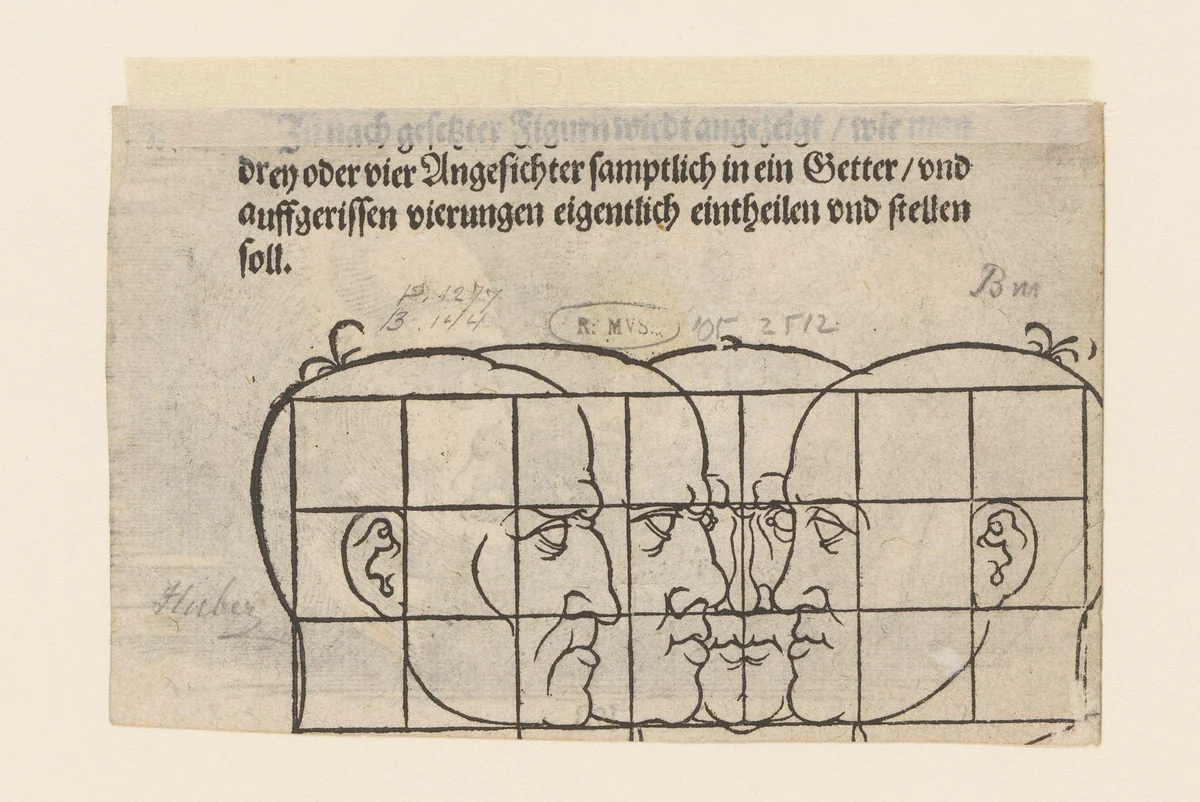 In nach gesetzter Figurn wirdt angezeigt / wie man
drey oder vier Angesichter samptlich in ein Getter / vnd
auffgerissen vierungen eigentlich eintheilen vnd stellen
soll.
P. 1277
B. 144
R. MVS.
'05 2512
Bm
Huber